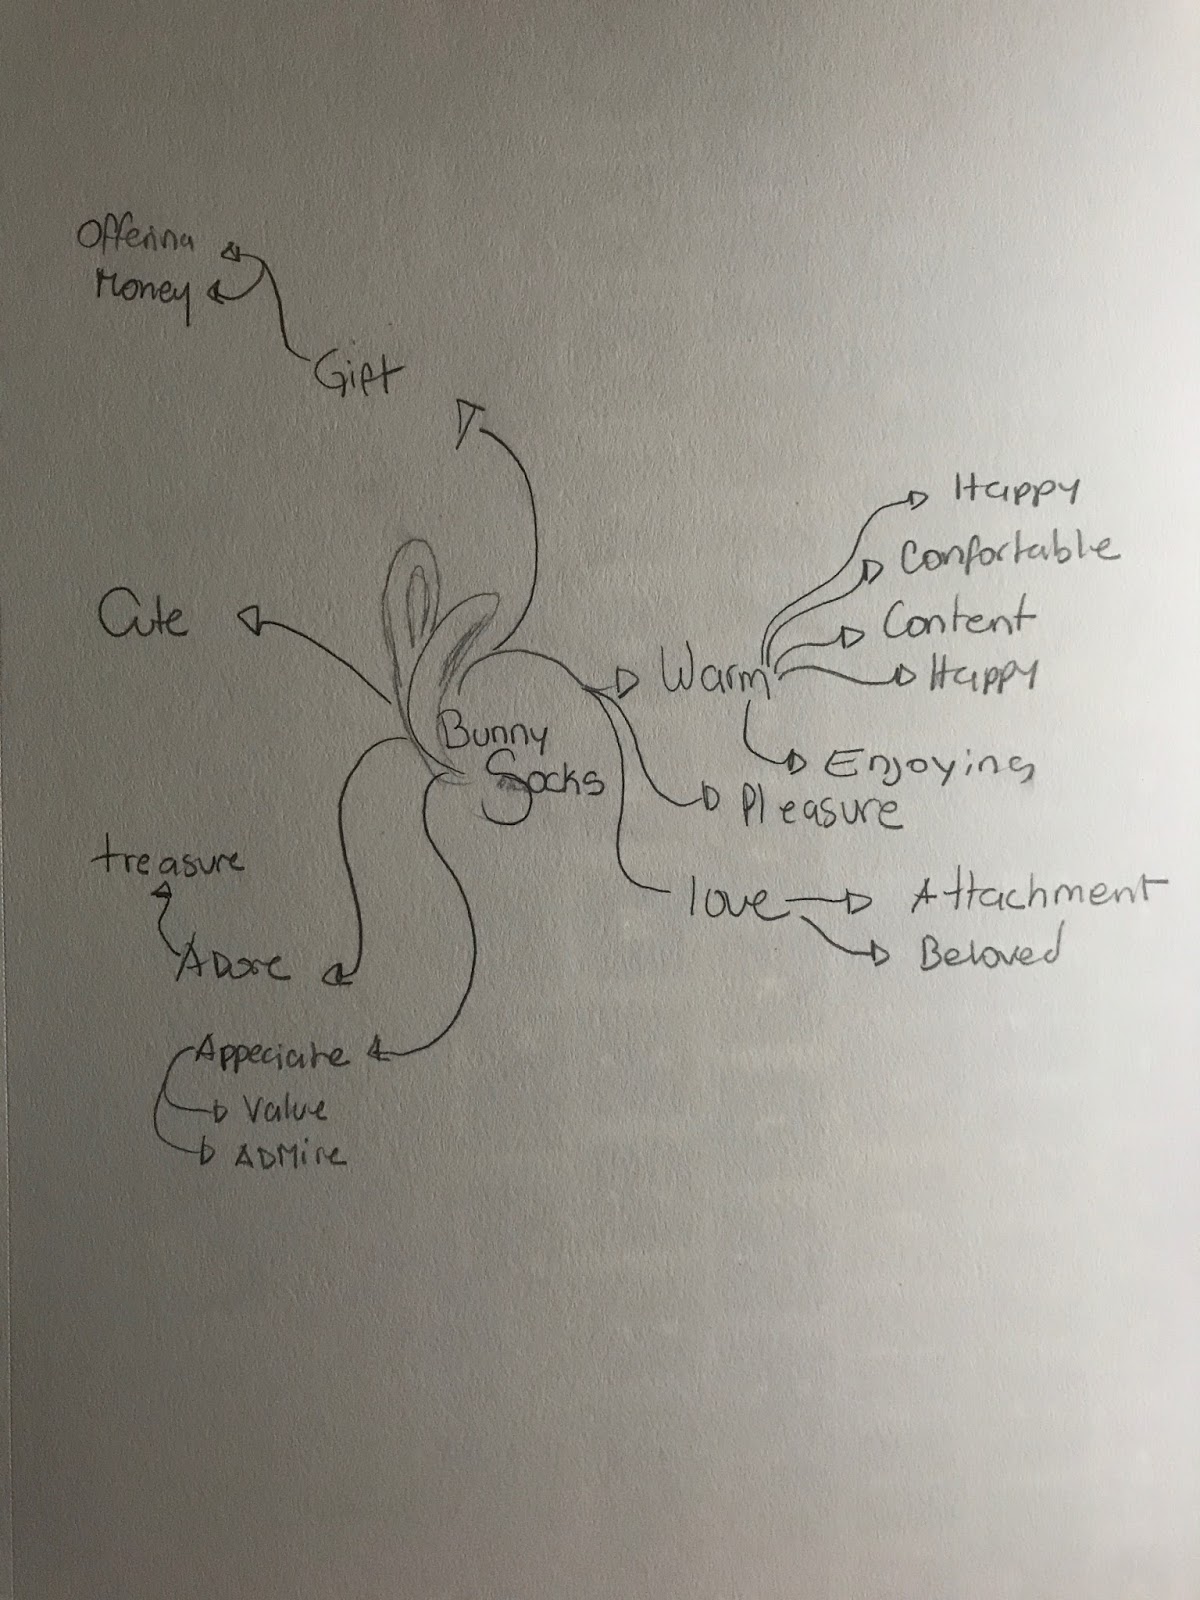 Offering
Money
Gift
Happy
Confortable
Cute
Content
Warm
Happy
Bunny
Socks
Enjoying
Pleasure
treasure
love
Attachment
Adore
Beloved
Appeciate
Value
ADMire